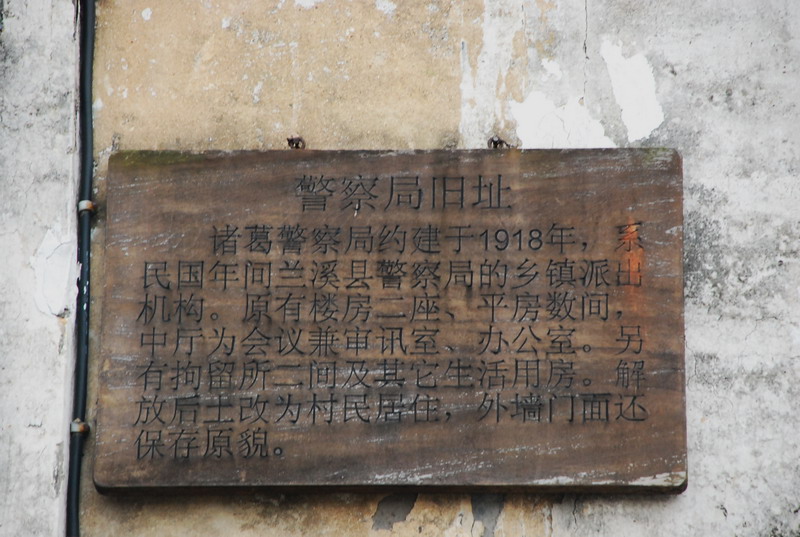 警察局旧址
诸葛警察局约建于1918年，系
民国年间兰溪县警察局的乡镇派出
机构。原有楼房二座、平房数间，
中厅为会议兼审讯室、办公室。另
有拘留所二间及其它生活用房。解
放后土改为村民居住，外墙门面还
保存原貌。